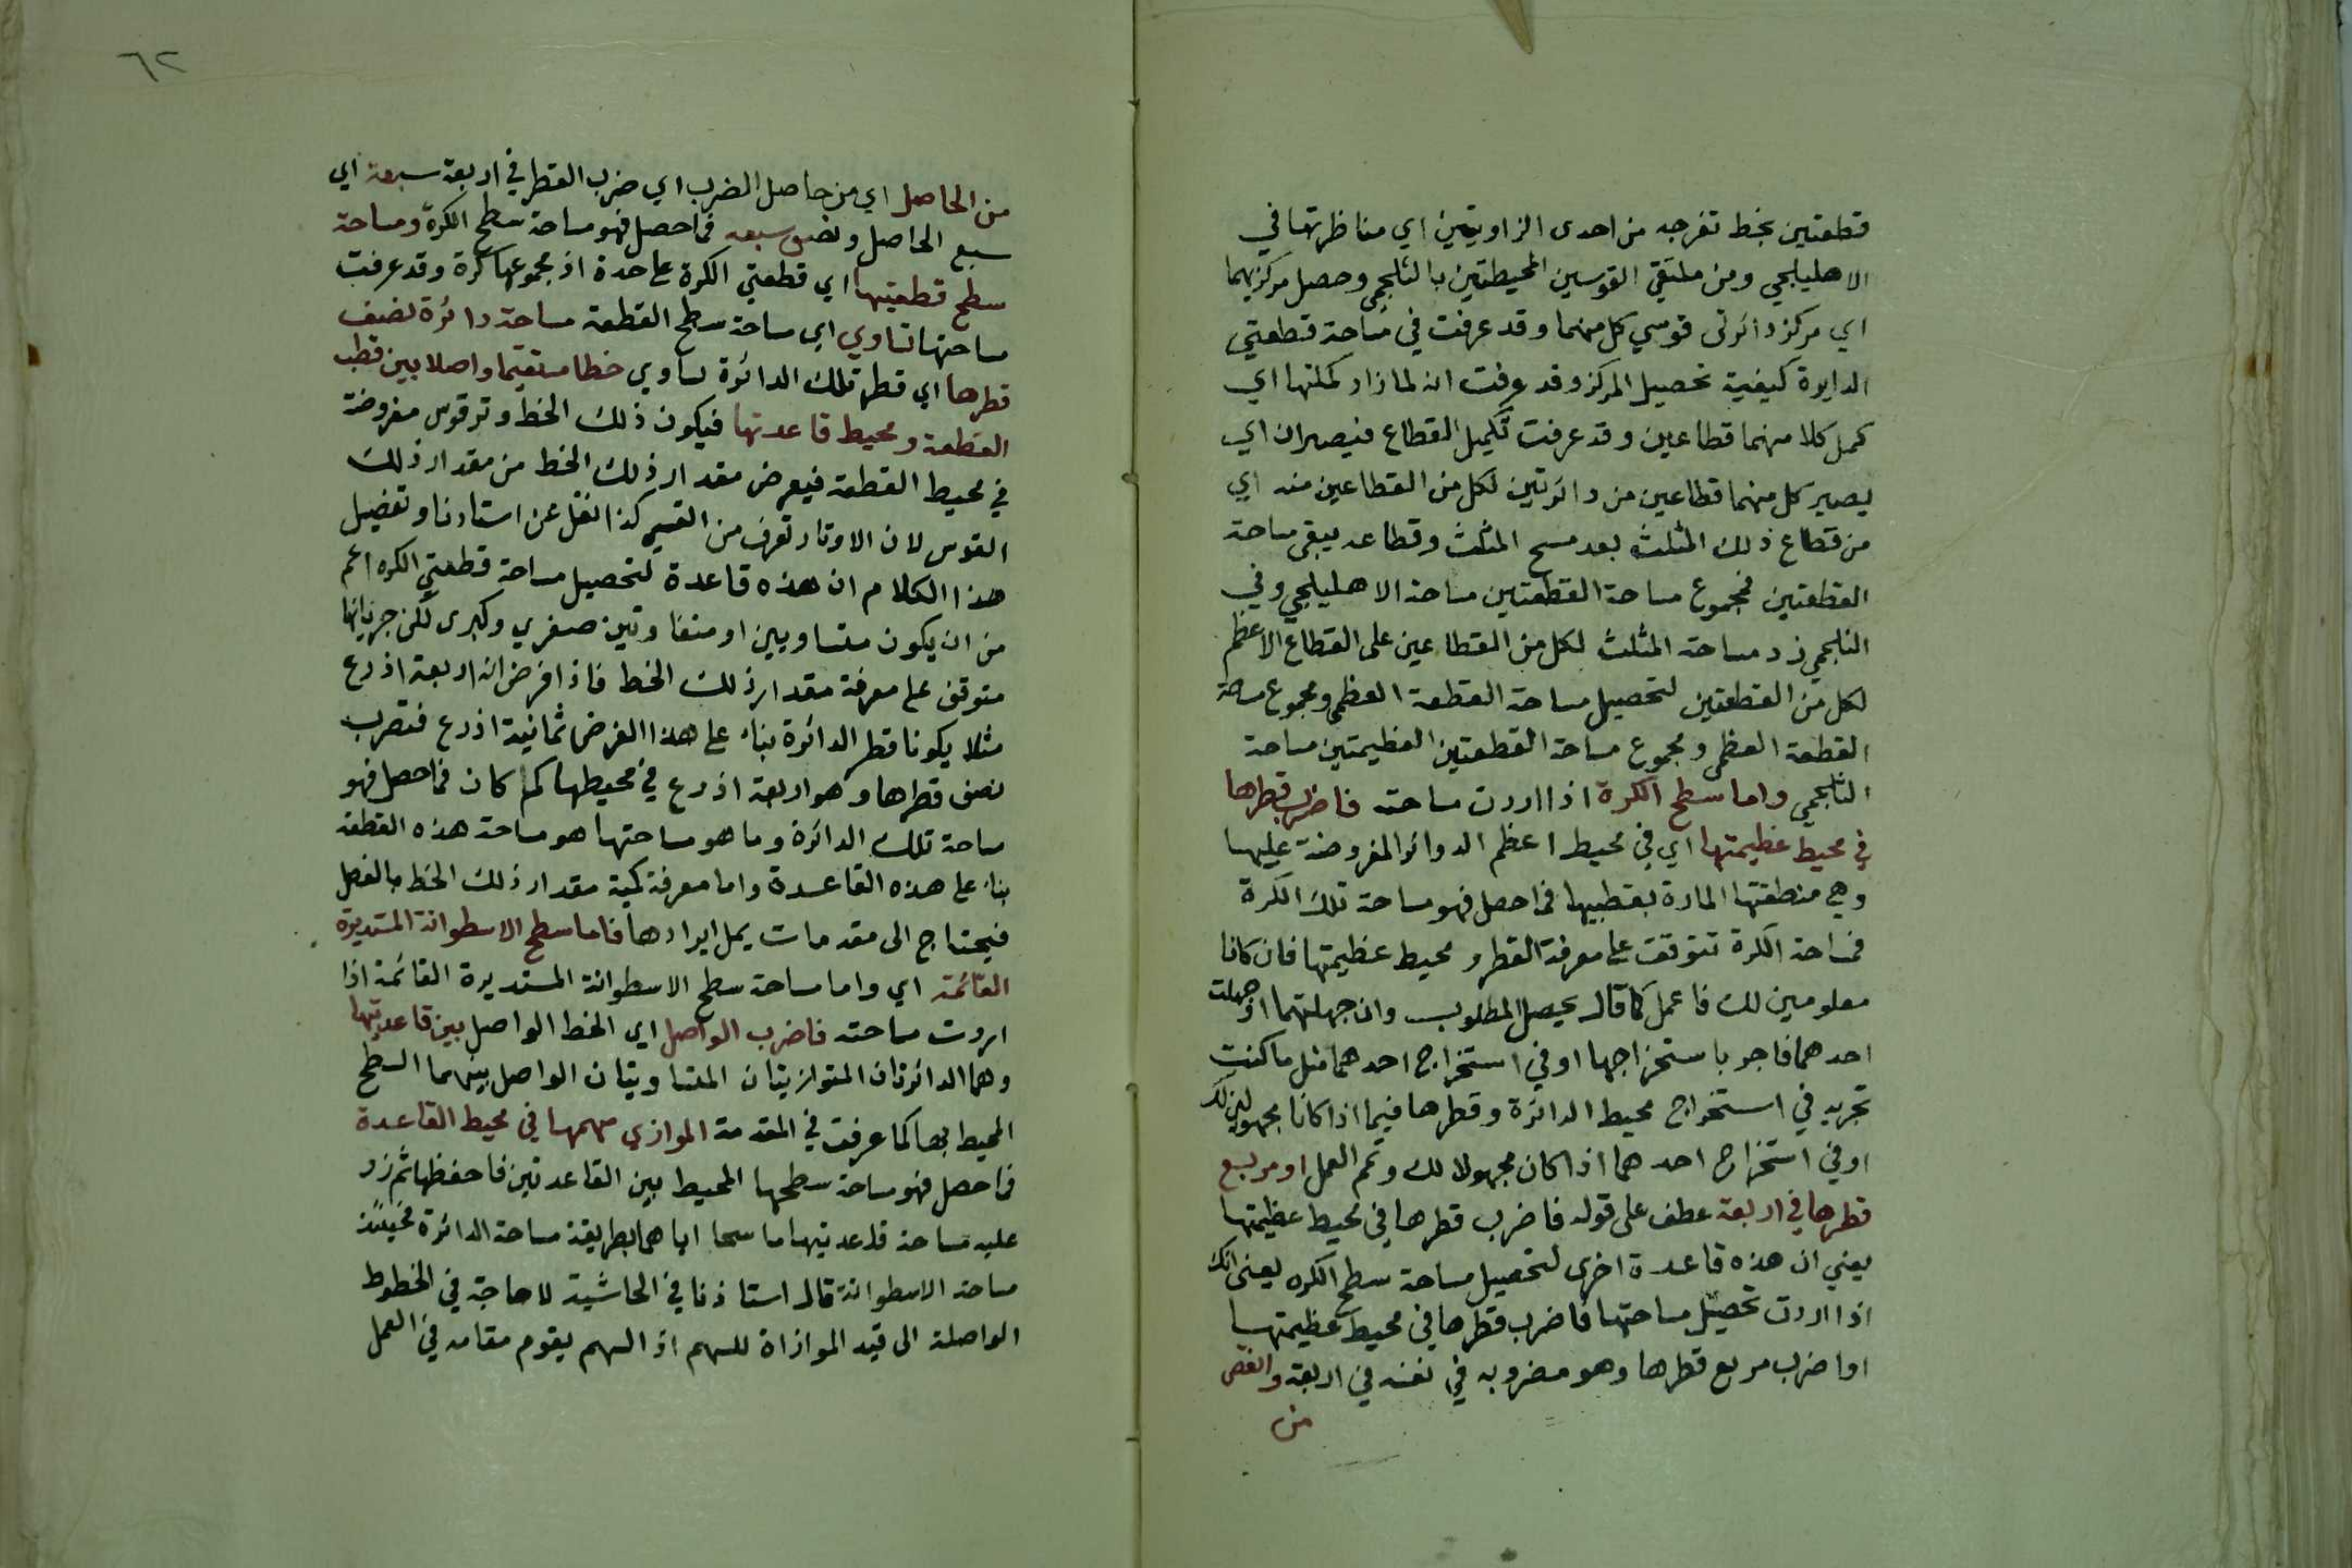 قطعتين بخط تخرجه من احدى الزاويتين اي مناظرتها في
الاهليلجي ومن ملتقى القوسين المحيطتين بالشلجمي وحصل مركزيهما
اي مركز دائرتى قوسي كل منهما وقد عرفت في مساحة قطعتي
الدايرة كيفية تحصيل المركز وقد عرفت انه لماذا وكملتها اي
كمل كلا منهما قطاعين وقد عرفت تكميل القطاع فيصيران اي
يصير كل منهما قطاعين من دائرتين لكل من القطاعين منه اي
من قطاع ذلك المثلث بعد مسح المثلث وقطاعه يبقى مساحة
القطعتين فمجموع مساحة القطعتين مساحة الاهليلجي وفي
الشلجمي زد مساحة المثلث لكل من القطاعين على القطاع الاعظم
لكل من القطعتين لتحصيل مساحة القطعة العظمى ومجموع مساحة
القطعة العظمى ومجموع مساحة القطعتين العظيمتين مساحة
الشلجمي واما سطح الكرة اذا اردت مساحته فاضرب قطرها
في محيط عظيمتها اي في محيط اعظم الدوائر المفروضة عليها
وهي منطقتها المارة بقطبيها فما حصل فهو مساحة تلك الكرة
فمساحة الكرة تتوقف على معرفة القطر ومحيط عظيمتها فان كانا
معلومين لك فاعمل كما قال يحصل المطلوب وان جهلتهما او جهلت
احدهما فاجر باستخراجها او في استخراج احدهما مثل ما كنت
تجريه في استخراج محيط الدائرة وقطرها فيما اذا كانا مجهولين لك
او في استخراج احدهما اذا كان مجهولا لك وتمم العمل او مربع
قطرها في اربعة عطف على قوله فاضرب قطرها في محيط عظيمتها
يعني ان هذه قاعدة اخرى لتحصيل مساحة سطح الكره يعنى انك
اذا اردت تحصيل مساحتها فاضرب قطرها في محيط عظيمتها
او اضرب مربع قطرها وهو مضروبه في نفسه في اربعة وانقص
من
٦٢
من الحاصل اي من حاصل الضرب اي ضرب القطر في اربعة سبعه اي
سبع الحاصل ونصف سبعه فما حصل فهو مساحة سطح الكرة ومساحة
سطح قطعتيها اي قطعتي الكرة على حدة اذ مجموعها كرة وقد عرفت
مساحتها تساوي اي مساحة سطح القطعة مساحة دائرة نصف
قطرها اي قطر تلك الدائرة يساوي خطا مستقيما واصلا بين قطب
القطعة ومحيط قاعدتها فيكون ذلك الخط وتر قوس مفروضة
في محيط القطعة فيعرض مقدار ذلك الخط من مقدار ذلك
القوس لان الاوتار تعرف من القسي كذا نقل عن استادنا وتفصيل
هذا الكلام ان هذه قاعدة لتحصيل مساحة قطعتي الكره اعم
من ان يكون متساويين او متفاوتين صغرى وكبرى لكن جريانها
متوقف على معرفة مقدار ذلك الخط فاذا فرض انه اربعة اذرع
مثلا يكونا قطر الدائرة بناء على هذا الفرض ثمانية اذرع فتضرب
نصف قطرها وهو اربعة اذرع في محيطها كم كان فما حصل فهو
مساحة تلك الدائرة وما هو مساحتها هو مساحة هذه القطعة
بناء على هذه القاعدة واما معرفة كمية مقدار ذلك الخط بالفعل
فيحتاج الى مقدمات يمل ايرادها فاما سطح الاسطوانة المستديرة
القائمة اي واما مساحة سطح الاسطوانة المستديرة القائمة اذا
اردت مساحته فاضرب الواصل اي الخط الواصل بين قاعدتيها
وهما الدائرتان المتوازيتان المتساويتان الواصل بينهما السطح
المحيط بها كما عرفت في المقدمة الموازي سهمها في محيط القاعدة
فما حصل فهو مساحة سطحها المحيط بين القاعدتين فاحفظها ثم زد
عليه مساحة قاعدتيها ماسحا اياهما بطريقة مساحة الدائرة فحينئذ
مساحة الاسطوانة قال استاذنا في الحاشية لا حاجة في الخطوط
الواصلة الى قيد الموازاة للسهم اذ السهم يقوم مقامه في العمل